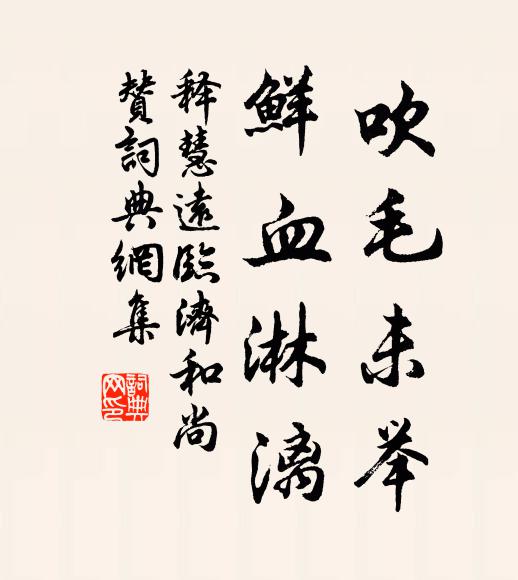 吹毛未举
鲜血淋漓
释慧远临济和尚
赞词典网集
词典
网印